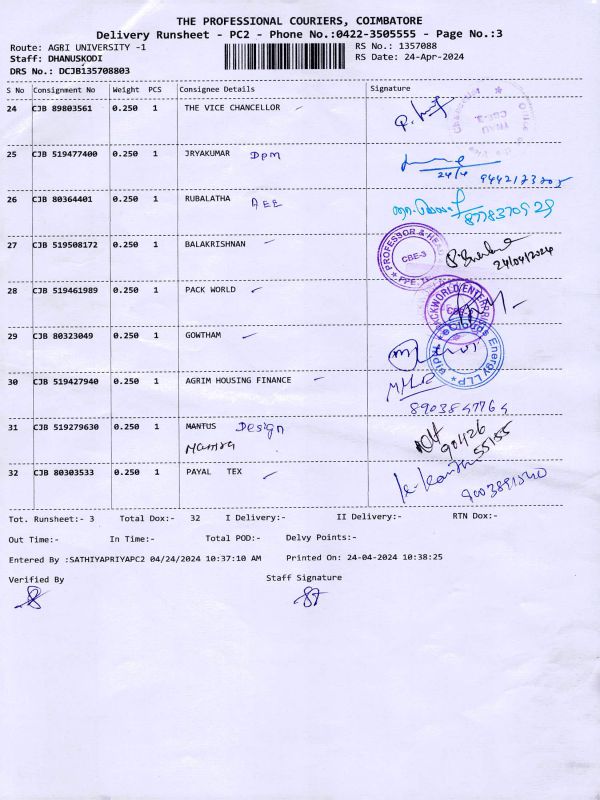 THE PROFESSIONAL COURIERS, COIMBATORE
Delivery Runsheet - PC2 - Phone No.:0422-3505555 - Page No.:3
Route: AGRI UNIVERSITY -1
RS No.: 1357088
Staff: DHANUSKODI
RS Date: 24-Apr-2024
DRS No.: DCJB135708803
S No Consignment No Weight PCS Consignee Details Signature
24 CJB 89803561 0.250 1 THE VICE CHANCELLOR
25 CJB 519477400 0.250 1 JRYAKUMAR DPM
24/4
26 CJB 80364401 0.250 1 RUBALATHA AEE
8778370929
27 CJB 519508172 0.250 1 BALAKRISHNAN
PROFESSOR & HEAD
CBE-3
24/04/2024
28 CJB 519461989 0.250 1 PACK WORLD
29 CJB 80323049 0.250 1 GOWTHAM
Energy LLP
30 CJB 519427940 0.250 1 AGRIM HOUSING FINANCE
31 CJB 519279630 0.250 1 MANTUS Design
90426
55155
32 CJB 80303533 0.250 1 PAYAL TEX
Tot. Runsheet:- 3 Total Dox:- 32 I Delivery:- II Delivery:- RTN Dox:-
Out Time:- In Time:- Total POD:- Delvy Points:-
Entered By :SATHIYAPRIYAPC2 04/24/2024 10:37:10 AM Printed On: 24-04-2024 10:38:25
Verified By Staff Signature